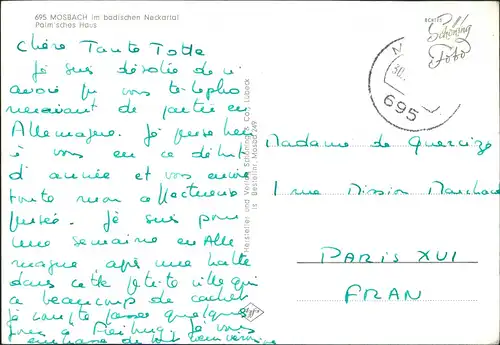 695 MOSBACH im badischen Neckartal
Palm'sches Haus
Chère Tante Totte
Je suis désolée de n'
avoir pu vous télépho
neravant de partir en
Allemagne. Je pense bien
à vous en ce début
d'année et vous envoie
toute mon affectueuse
pensée. Je suis pour
une semaine en Alle
magne après une halte
dans cette petite ville qui
a beaucoup de cachet
Je compte passer quelques
jours à Freiburg. Je vous
embrasse de tout
Hersteller und Verlag Schöning & Co., Lübeck
Bestellnr. Mosbad 249
ECHTES
Schöning
Foto
695
Madame de Quercize
1 rue Mission Marchand
PARIS XVI
FRAN